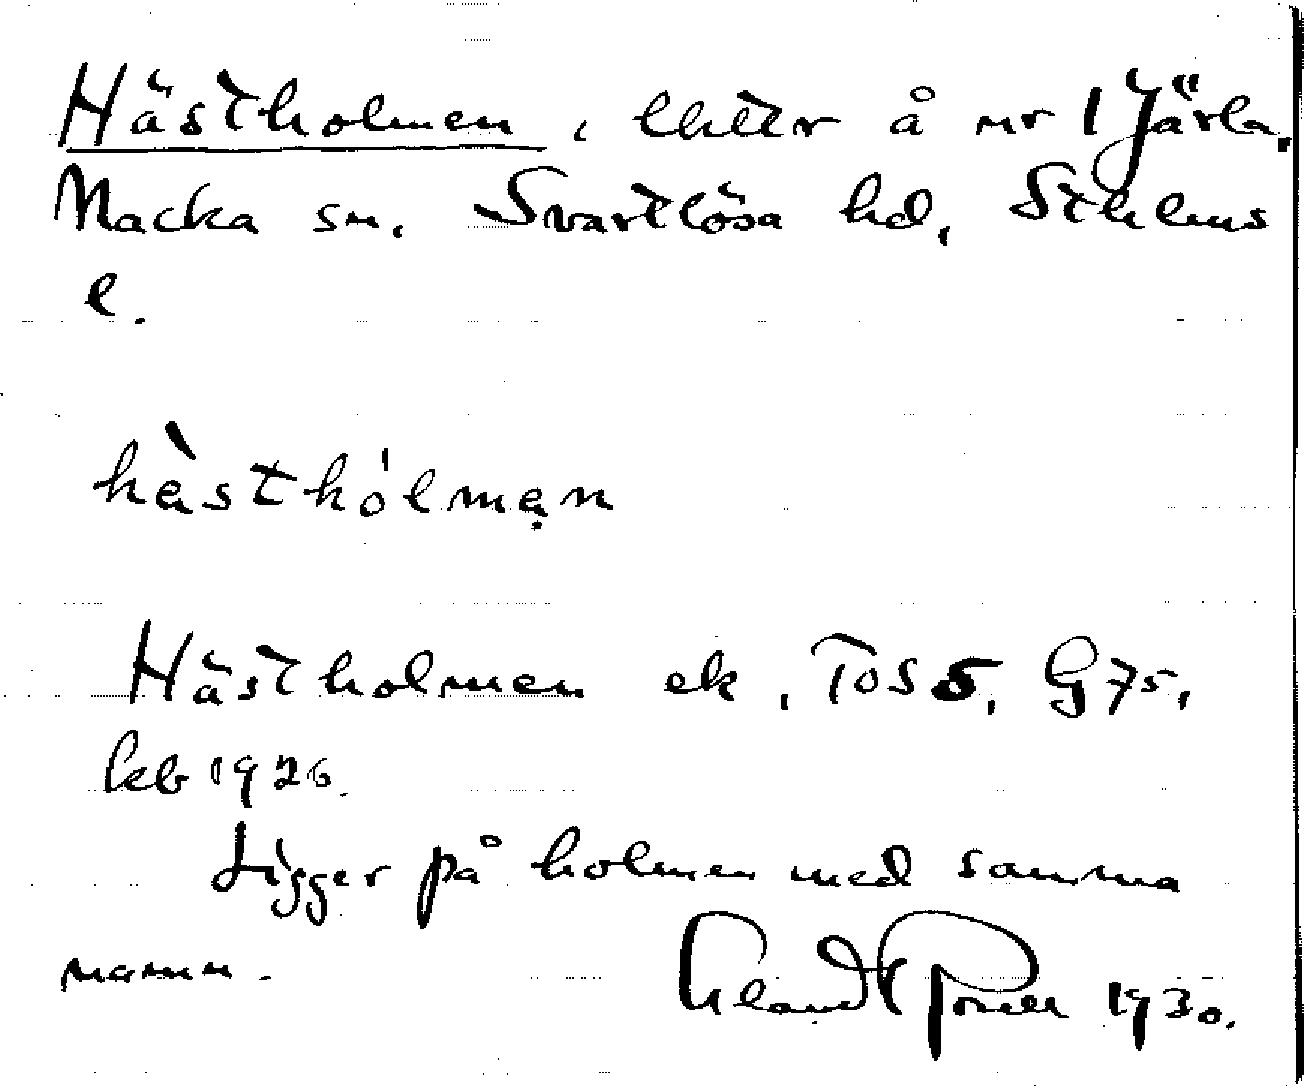 Hästholmen, lht er å nr 1 Järla,
Nacka sn. Svartlösa hd, Sthlms
l.
hàsthólmạn
Hästholmen ek, TOS 5, G 75,
kb 1926.
Ligger på holmen med samma
namn.
1930.